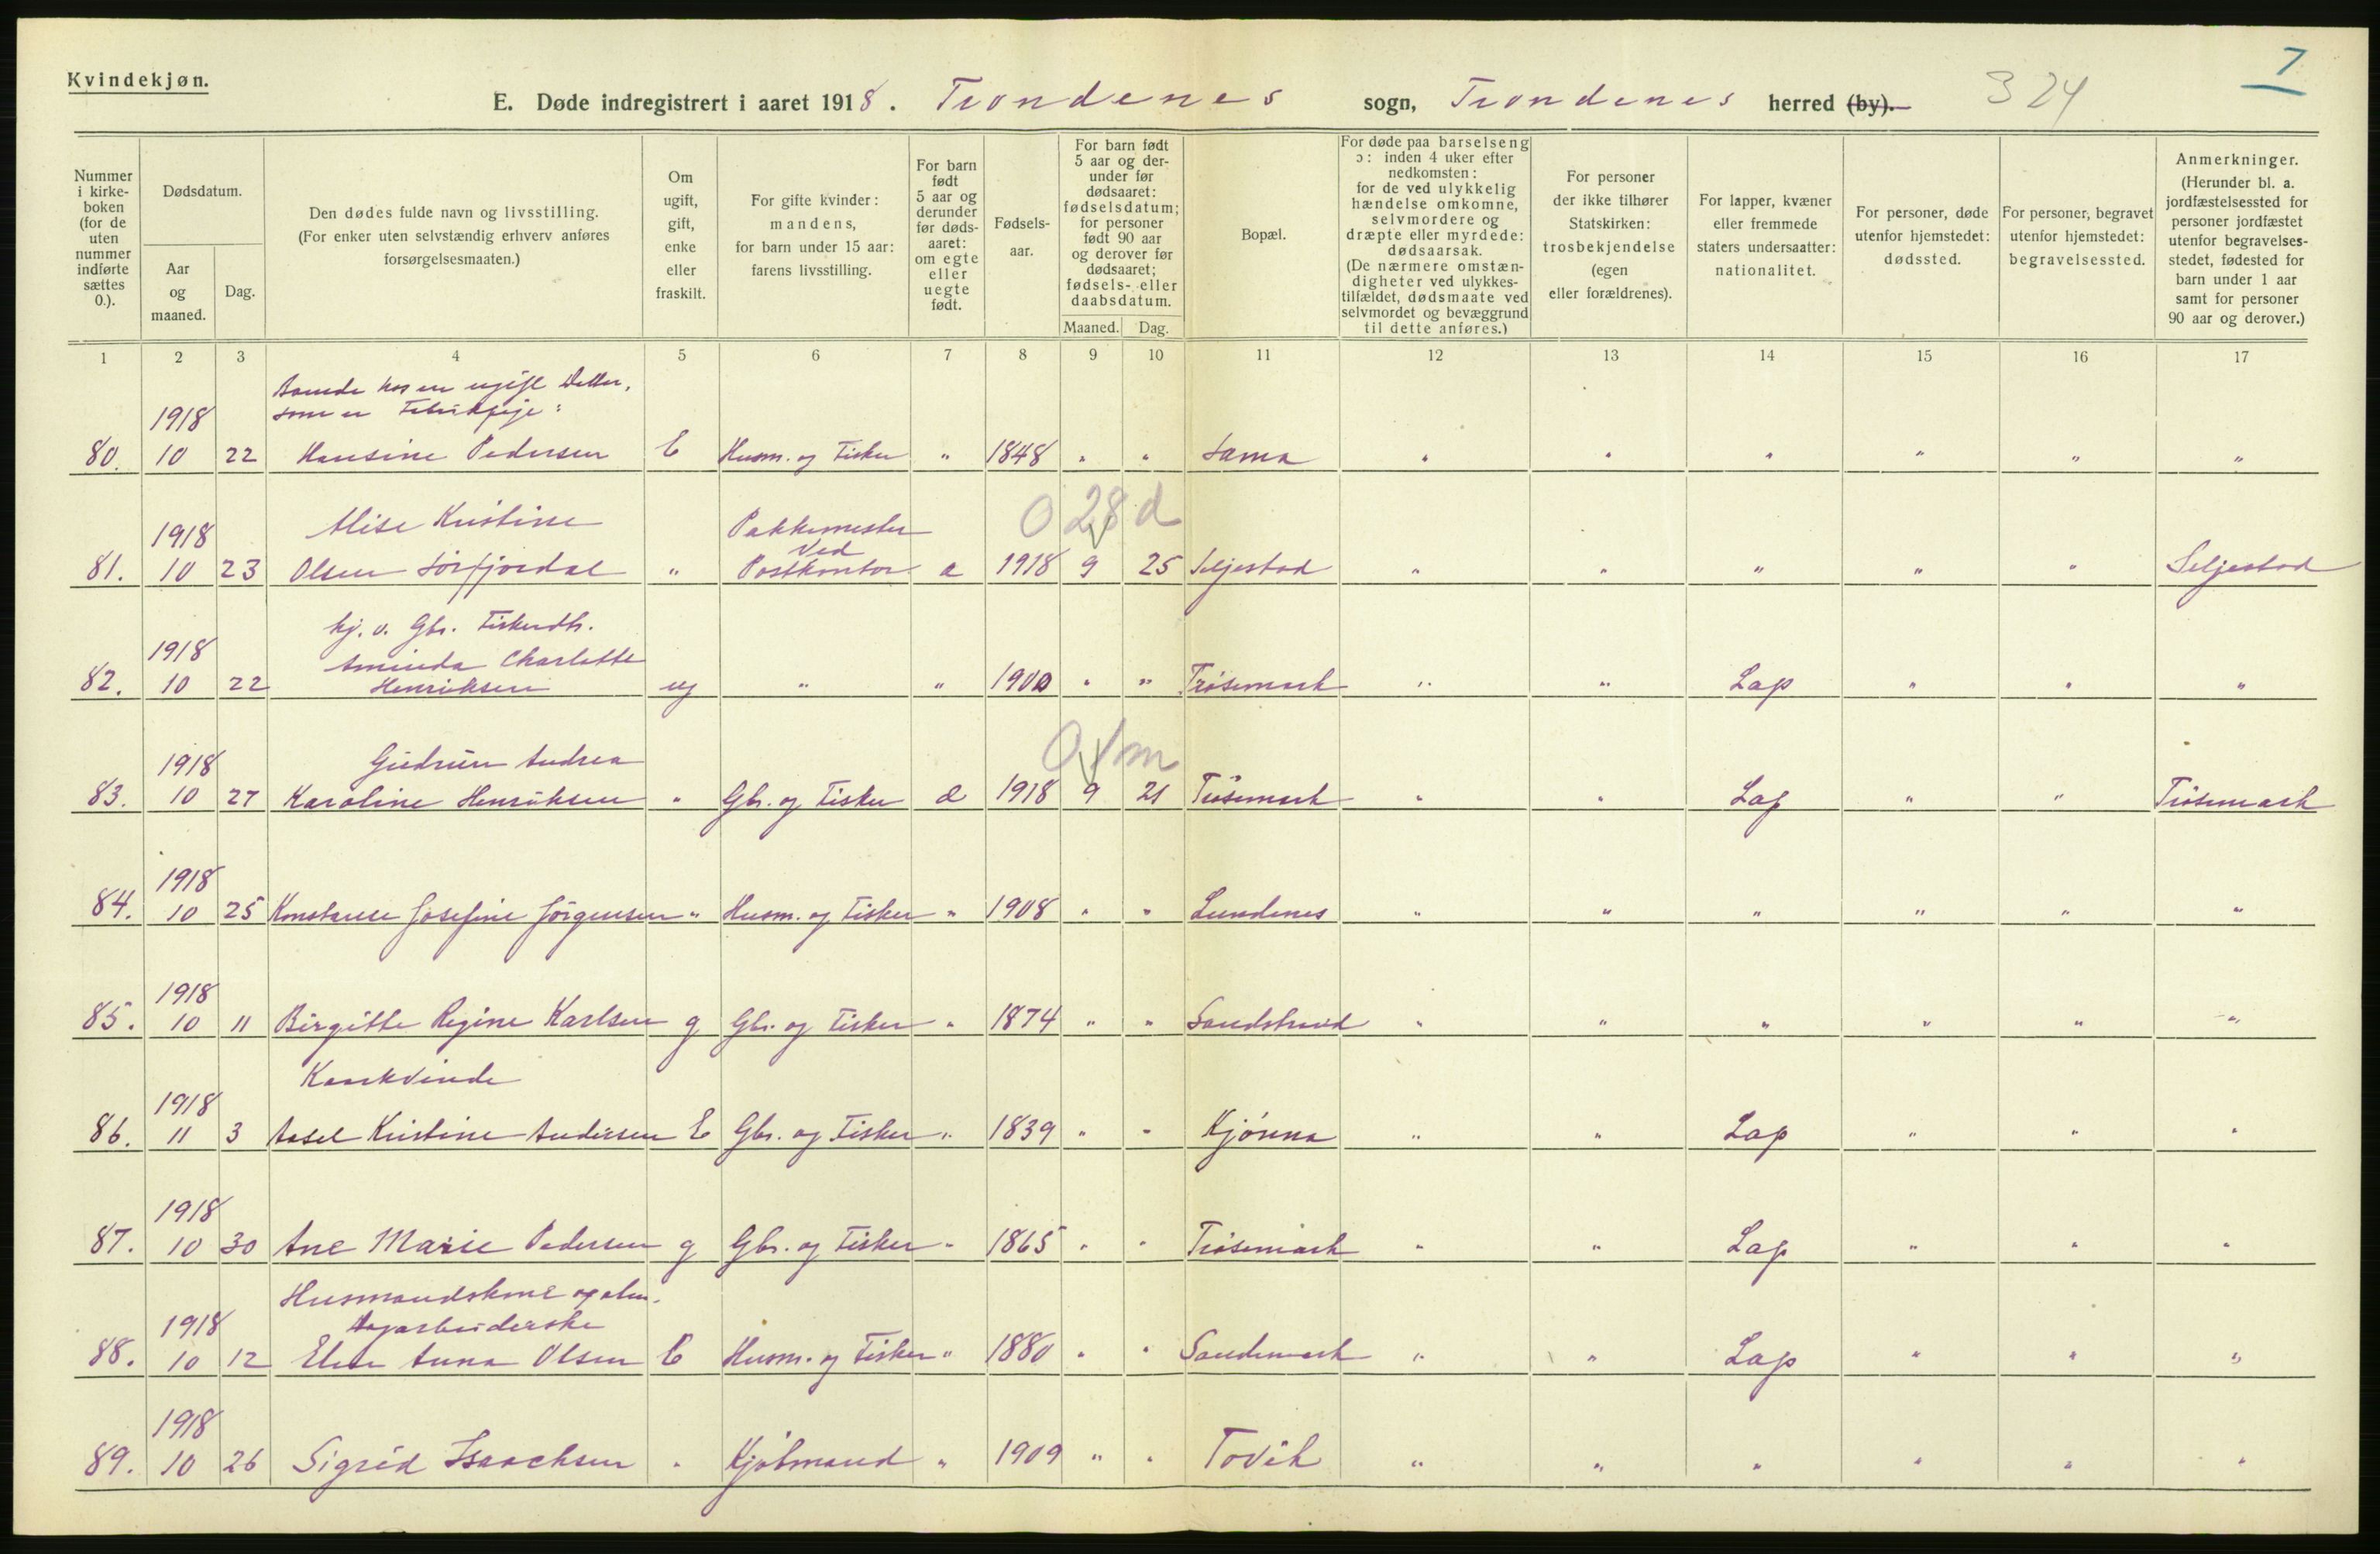 Kvindekjøn.
7
E. Døde indregistrert i aaret 1918. Trondenes sogn, Trondenes herred (by). 324
Nummer i kirke-boken (for de uten nummer indførte sættes 0.).
Dødsdatum.
Aar og maaned.
Dag.
Den dødes fulde navn og livsstilling.
(For enker uten selvstændig erhverv anføres forsørgelsesmaaten.)
Om ugift, gift, enke eller fraskilt.
For gifte kvinder: mandens, for barn under 15 aar: farens livsstilling.
For barn født 5 aar og derunder før døds-aaret: om egte eller uegte født.
Fødsels-aar.
For barn født 5 aar og der-under før dødsaaret: fødselsdatum; for personer født 90 aar og derover før dødsaaret; fødsels- eller daabsdatum.
Maaned.
Dag.
Bopæl.
For døde paa barselseng ɔ: inden 4 uker efter nedkomsten: for de ved ulykkelig hændelse omkomne, selvmordere og dræpte eller myrdede: dødsaarsak. (De nærmere omstæn-digheter ved ulykkes-tilfældet, dødsmaate ved selvmordet og bevæggrund til dette anføres.)
For personer der ikke tilhører Statskirken: trosbekjendelse (egen eller forældrenes).
For lapper, kvæner eller fremmede staters undersaatter: nationalitet.
For personer, døde utenfor hjemstedet: dødssted.
For personer, begravet utenfor hjemstedet: begravelsessted.
Anmerkninger. (Herunder bl. a. jordfæstelsessted for personer jordfæstet utenfor begravelses-stedet, fødested for barn under 1 aar samt for personer 90 aar og derover.)
1 2 3 4 5 6 7 8 9 10 11 12 13 14 15 16 17
Boende hos en ugift Datter,
1918 som er
80. 10 22 Hansine Pedersen E Husm. og Fisker " 1848 " " Sama " " " " " "
0 28 d
1918 Alise Kristine Pakkemester
ved
81. 10 23 Olsen Sörfjordal " Postkontor a 1918 9 25 Seljestad " " " " " Seljestad
hj. v. Gbr. Fiskerdtr.
1918 Aminda Charlotte
82. 10 22 Henriksen ug " " 1900 " " Trösemark " " Lap " " "
0 1m
1918 Gudrun Andrea
83. 10 27 Karoline Henriksen " Gbr. og Fisker a 1918 9 21 Trösemark " " Lap " " Trösemark
1918
84. 10 25 Konstanse Josefine Jörgensen " Husm. og Fisker " 1908 " " Lundenes " " " " " "
1918
85. 10 11 Birgitte Regine Karlsen g Gbr. og Fisker " 1874 " " Sandstrand " " " " " "
Kaarkvinde
1918
86. 11 3 Aasel Kristine Andersen E Gbr. og Fisker " 1839 " " Kjönna " " Lap " " "
1918
87. 10 30 Ane Marie Pedersen g Gbr. og Fisker " 1865 " " Trösemark " " Lap " " "
Husmandskone og alm.
1918 Dagarbeiderske
88. 10 12 Elen Anna Olsen E Husm. og Fisker " 1880 " " Sandemark " " Lap " " "
1918
89. 10 26 Sigrid Isaachsen " Kjöbmand " 1909 " " Tovik " " " " " "